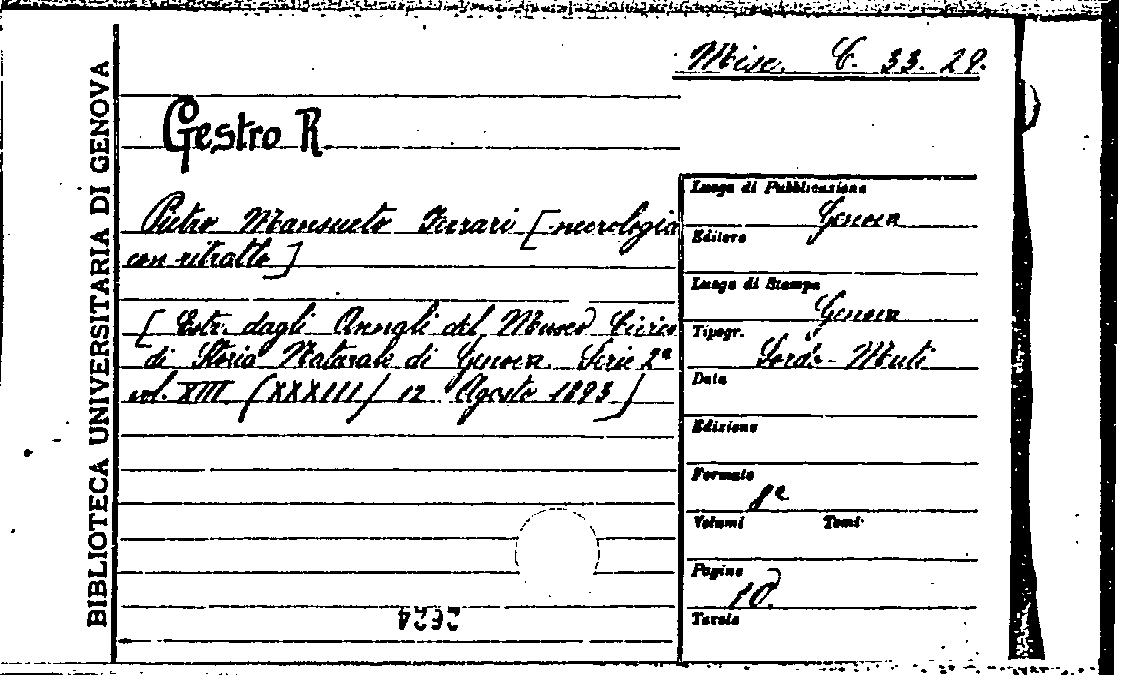 BIBLIOTECA UNIVERSITARIA DI GENOVA
Misc. C. 33. 29.
Gestro R.
Pietro Mansueto Ferrari [necrologia
con ritratto]
[Estr. dagli Annali del Museo Civico
di Storia Naturale di Genova. Serie 2ª
vol. XIII (XXXIII) 12 Agosto 1893]
Luogo di Pubblicazione
Genova
Editore
Luogo di Stampa
Genova
Tipogr.
Sordo-Muti
Data
Edizione
Formato
8º
Volumi Tomi
Pagine
10.
Tavole
2624